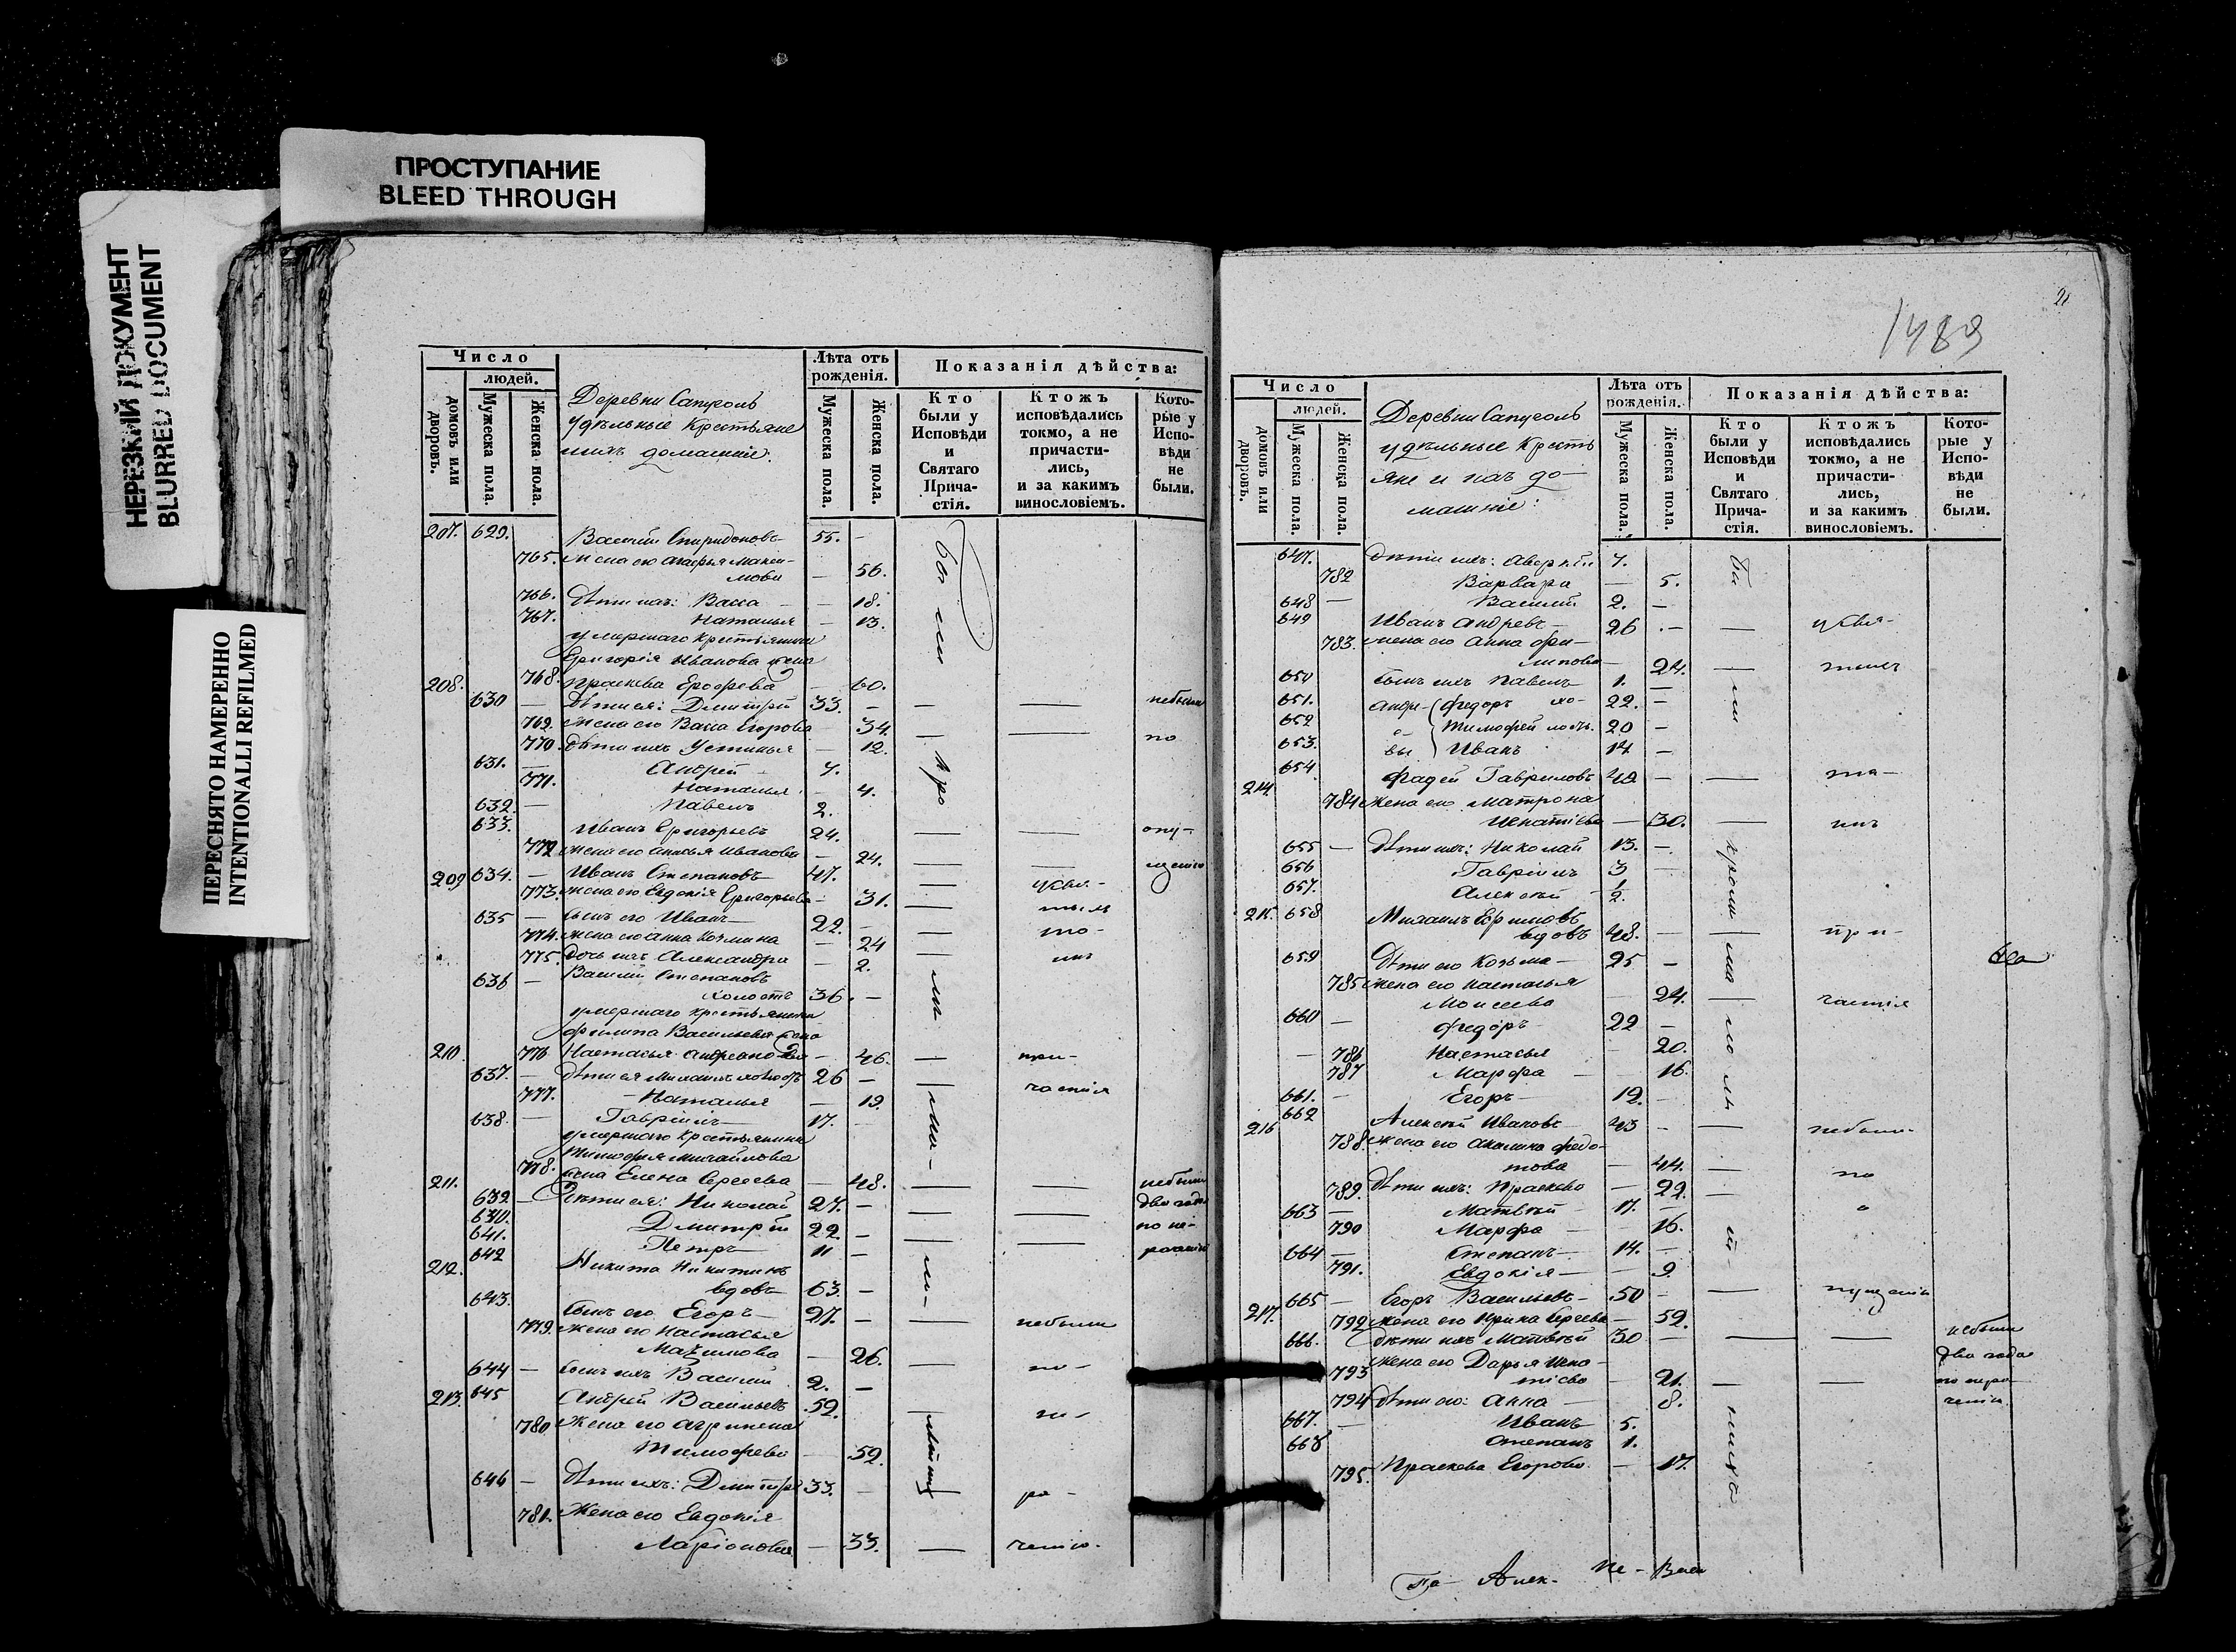 ПРОСТУПАНИЕ
BLEED THROUGH
НЕРЕЗКИЙ ДОКУМЕНТ
BLURRED DOCUMENT
ПЕРЕСНЯТО НАМЕРЕННО
INTENTIONALLI REFILMED
Число
людей.
домовъ или дворовъ.
Мужеска пола.
Женска пола.
Деревни Сапуголь
удѣльные Крестьяне
ихъ домашніе.
Лѣта отъ рожденія.
Мужеска пола.
Женска пола.
Показанія дѣйства:
Кто были у Исповѣди и Святаго Прича-стія.
Ктожъ исповѣдались токмо, а не причасти-лись, и за какимъ винословіемъ.
Кото-рые у Испо-вѣди не были.
207. 629. Василій Спиридоновъ 55. —
765. Жена его Макси-
мова — 56.
766. дѣти ихъ: Васса — 18.
767. Наталья — 13.
умершаго крестьянина
Григорія Иванова жена
208. 768. Праскева Ерофеева — 60.
630 — дѣти ея: Дмитрій 33. — небыли
769. Жена его Васса Егорова — 34. по
770. дѣти ихъ Устинья — 12.
631. Андрей 7.
771. Наталья — 4.
632. — Павелъ 2.
633. Иванъ Григорьевъ 24. опу-
772 жена его Иванова — 24. щенію
209 634. — Иванъ Степановъ 47.
773. жена его Евдокія Григорьева 31.
635 — сынъ его Иванъ 22. —
774. жена его Анна Козмина — 24
775. дочь ихъ Александра — 2.
636 — Василій Степановъ
холостъ 36. —
умершаго крестьянина
Филипа Васильева жена
210. 776 Настасья — 46. при-
637. — дѣти ея Михаилъ холостъ 26 — частія
777. Наталья — 19
638. — Гавріилъ 17. —
умершаго крестьянина
Тимофея Михайлова
211. 778. жена Елена Сергеева — 48. небыли
639. — дѣти ея: Николай 27. — два года
630. Дмитрій 22. — по не-
641. Петръ 11 —
212. 642 Никита Никитинъ
вдовъ 63. —
643. сынъ его Егоръ 27. —
779. жена его Настасья небыли
— 26. по-
644 — сынъ ихъ Василій 2. —
213. 645 Андрей Васильевъ 52.
780 Жена его Агрипена
Тимофеева — 52.
646 — дѣти ихъ: Дмитрій 33. —
781. Жена его Евдокія
Ларіонова — 33.
21
1489
Число
людей.
домовъ или дворовъ.
Мужеска пола.
Женска пола.
Деревни Сапуголь
удѣльные Кресть
яне и ихъ до-
машніе:
Лѣта отъ рожденія.
Мужеска пола.
Женска пола.
Показанія дѣйства:
Кто были у Исповѣди и Святаго Прича-стія.
Ктожъ исповѣдались токмо, а не причасти-лись, и за какимъ винословіемъ.
Кото-рые у Испо-вѣди не были.
647. дѣти ихъ: Аверкій 7.
782 Варвара — 5.
648 — Василій 2. —
649 Иванъ Андреевъ 26
783. жена его Анна Фи-
липова 24.
650 сынъ ихъ Павелъ 1. —
651. Федоръ 22. —
652 Тимофей 20 —
653. Иванъ 14 —
214 654 Фадей Гавриловъ 42 —
784 жена его Матрона
Игнатіева — 30.
655 — дѣти ихъ: Николай 13. —
656 Гавріилъ 3
657. Алексѣй 1/2.
215. 658 Михаилъ Ефимовъ
вдовъ 48. — при-
659 дѣти его Козьма 25 —
785 жена его Настасья
Моисеева 24. частія
660 — Федоръ 22 —
— 786 Настасья 20.
787 Марфа — 16.
661. — Егоръ 12. —
216 662 Алексѣй Ивановъ 43 — небыли
788. жена его Акилина Федо-
това — 44. по
789. дѣти ихъ: Праскева — 22.
663 — Матвѣй 17. — о
790 Марфа — 16.
664 — Степанъ 14. —
791. Евдокія — 9
217. 665 — Егоръ Васильевъ 50 — пущенію
792 жена его Ирина Сергеева — 52.
666. дѣти ихъ Матвѣй 30 — небыли
793 жена его Дарья Игна- два года
тіева — 21.
794 дѣти его: Анна — 8.
667. — Иванъ 5.
668 Степанъ 1.
795. Праскева Егорова — 17.